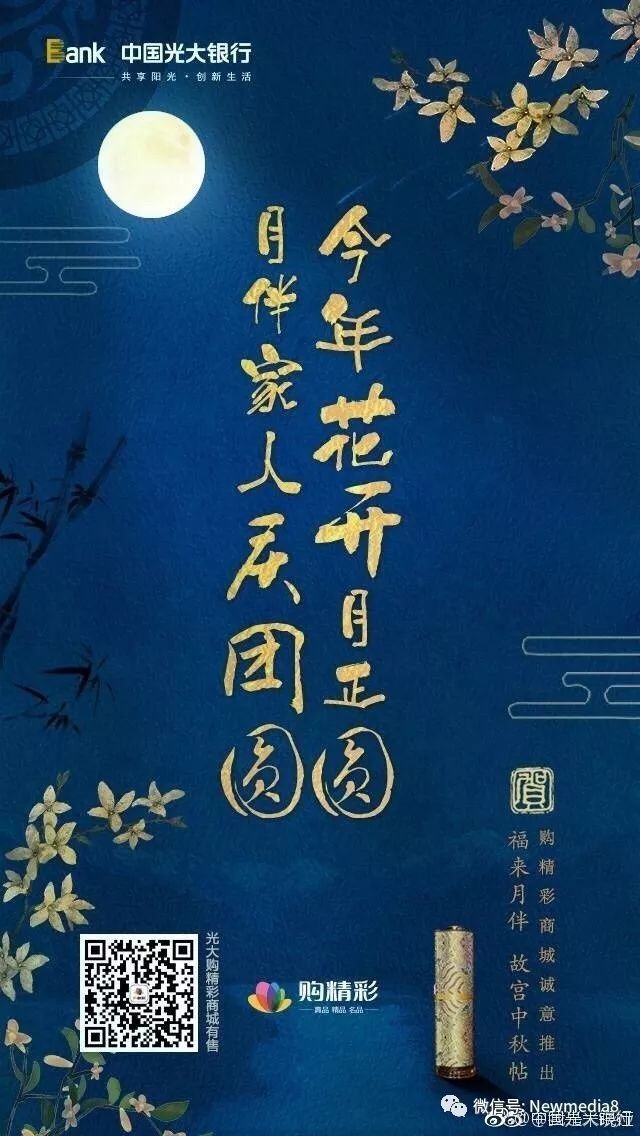 Bank 中国光大银行
共享阳光·创新生活
今年花开月正圆
月伴家人庆团圆
賀
购精彩商城诚意推出
福来月伴 故宫中秋帖
光大购精彩商城有售
购精彩
真品 精品 名品
微信号: Newmedia8